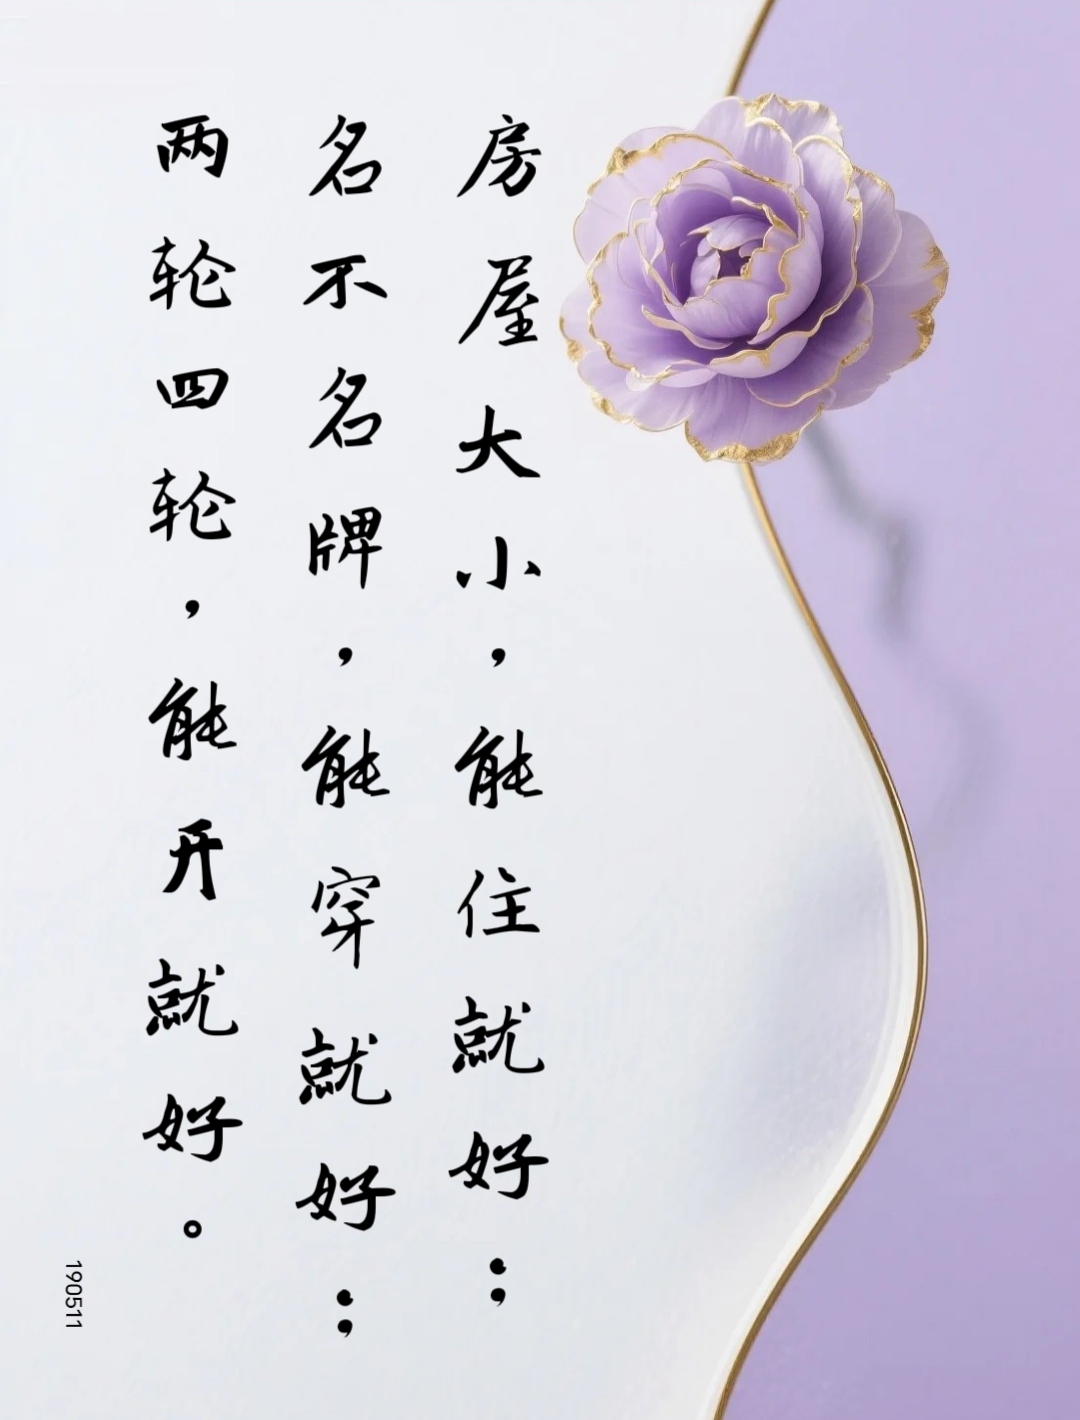 房屋大小，能住就好；
名不名牌，能穿就好；
两轮四轮，能开就好。
190511